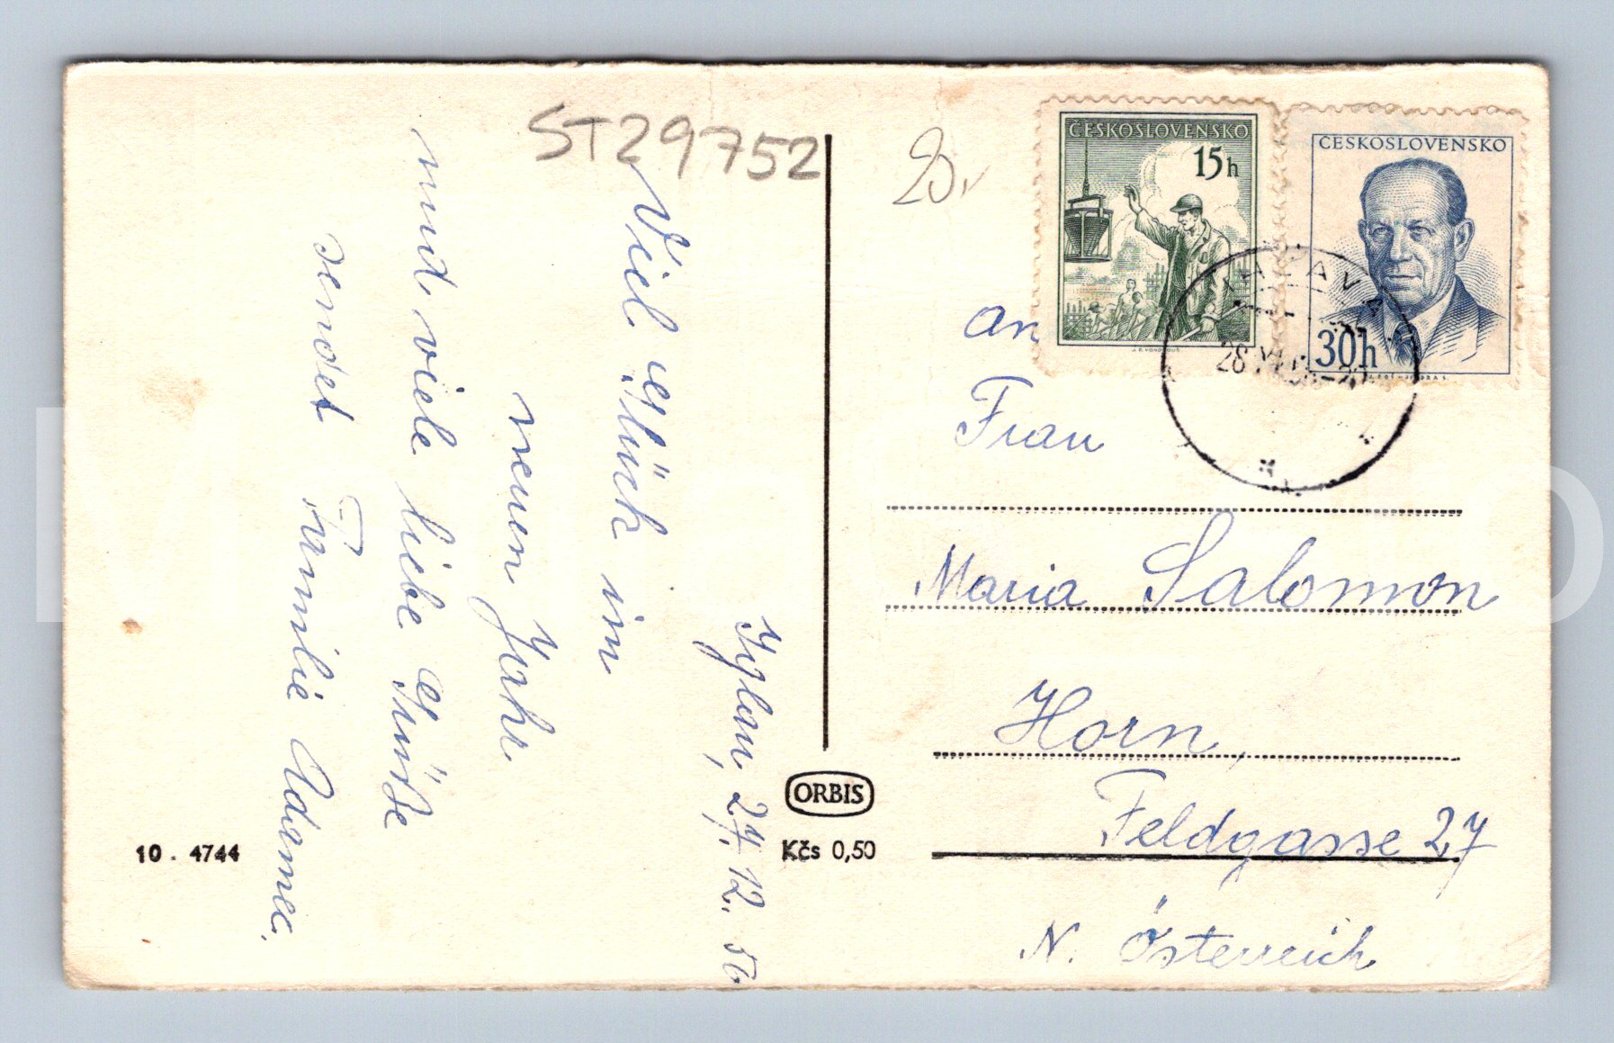 ST29752
Iglau, 27. 12. 56
Viel Glück im
neuen Jahr
und viele liebe Grüße
sendet Familie Adamec.
ORBIS
Kčs 0,50
10 . 4744
ČESKOSLOVENSKO
15h
ČESKOSLOVENSKO
30h
JIHLAVA
28
an
Frau
Maria Salomon
Horn,
Feldgasse 27
N. Österreich